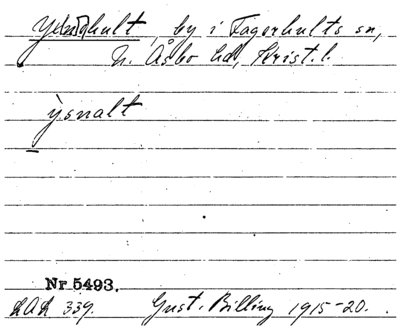 hult, by i Fagerhults sn,
N. Åsbo hd, Krist. l.
ỳsnalt
Nr 5493.
LAL 339. Gust. Billing 1915-20.